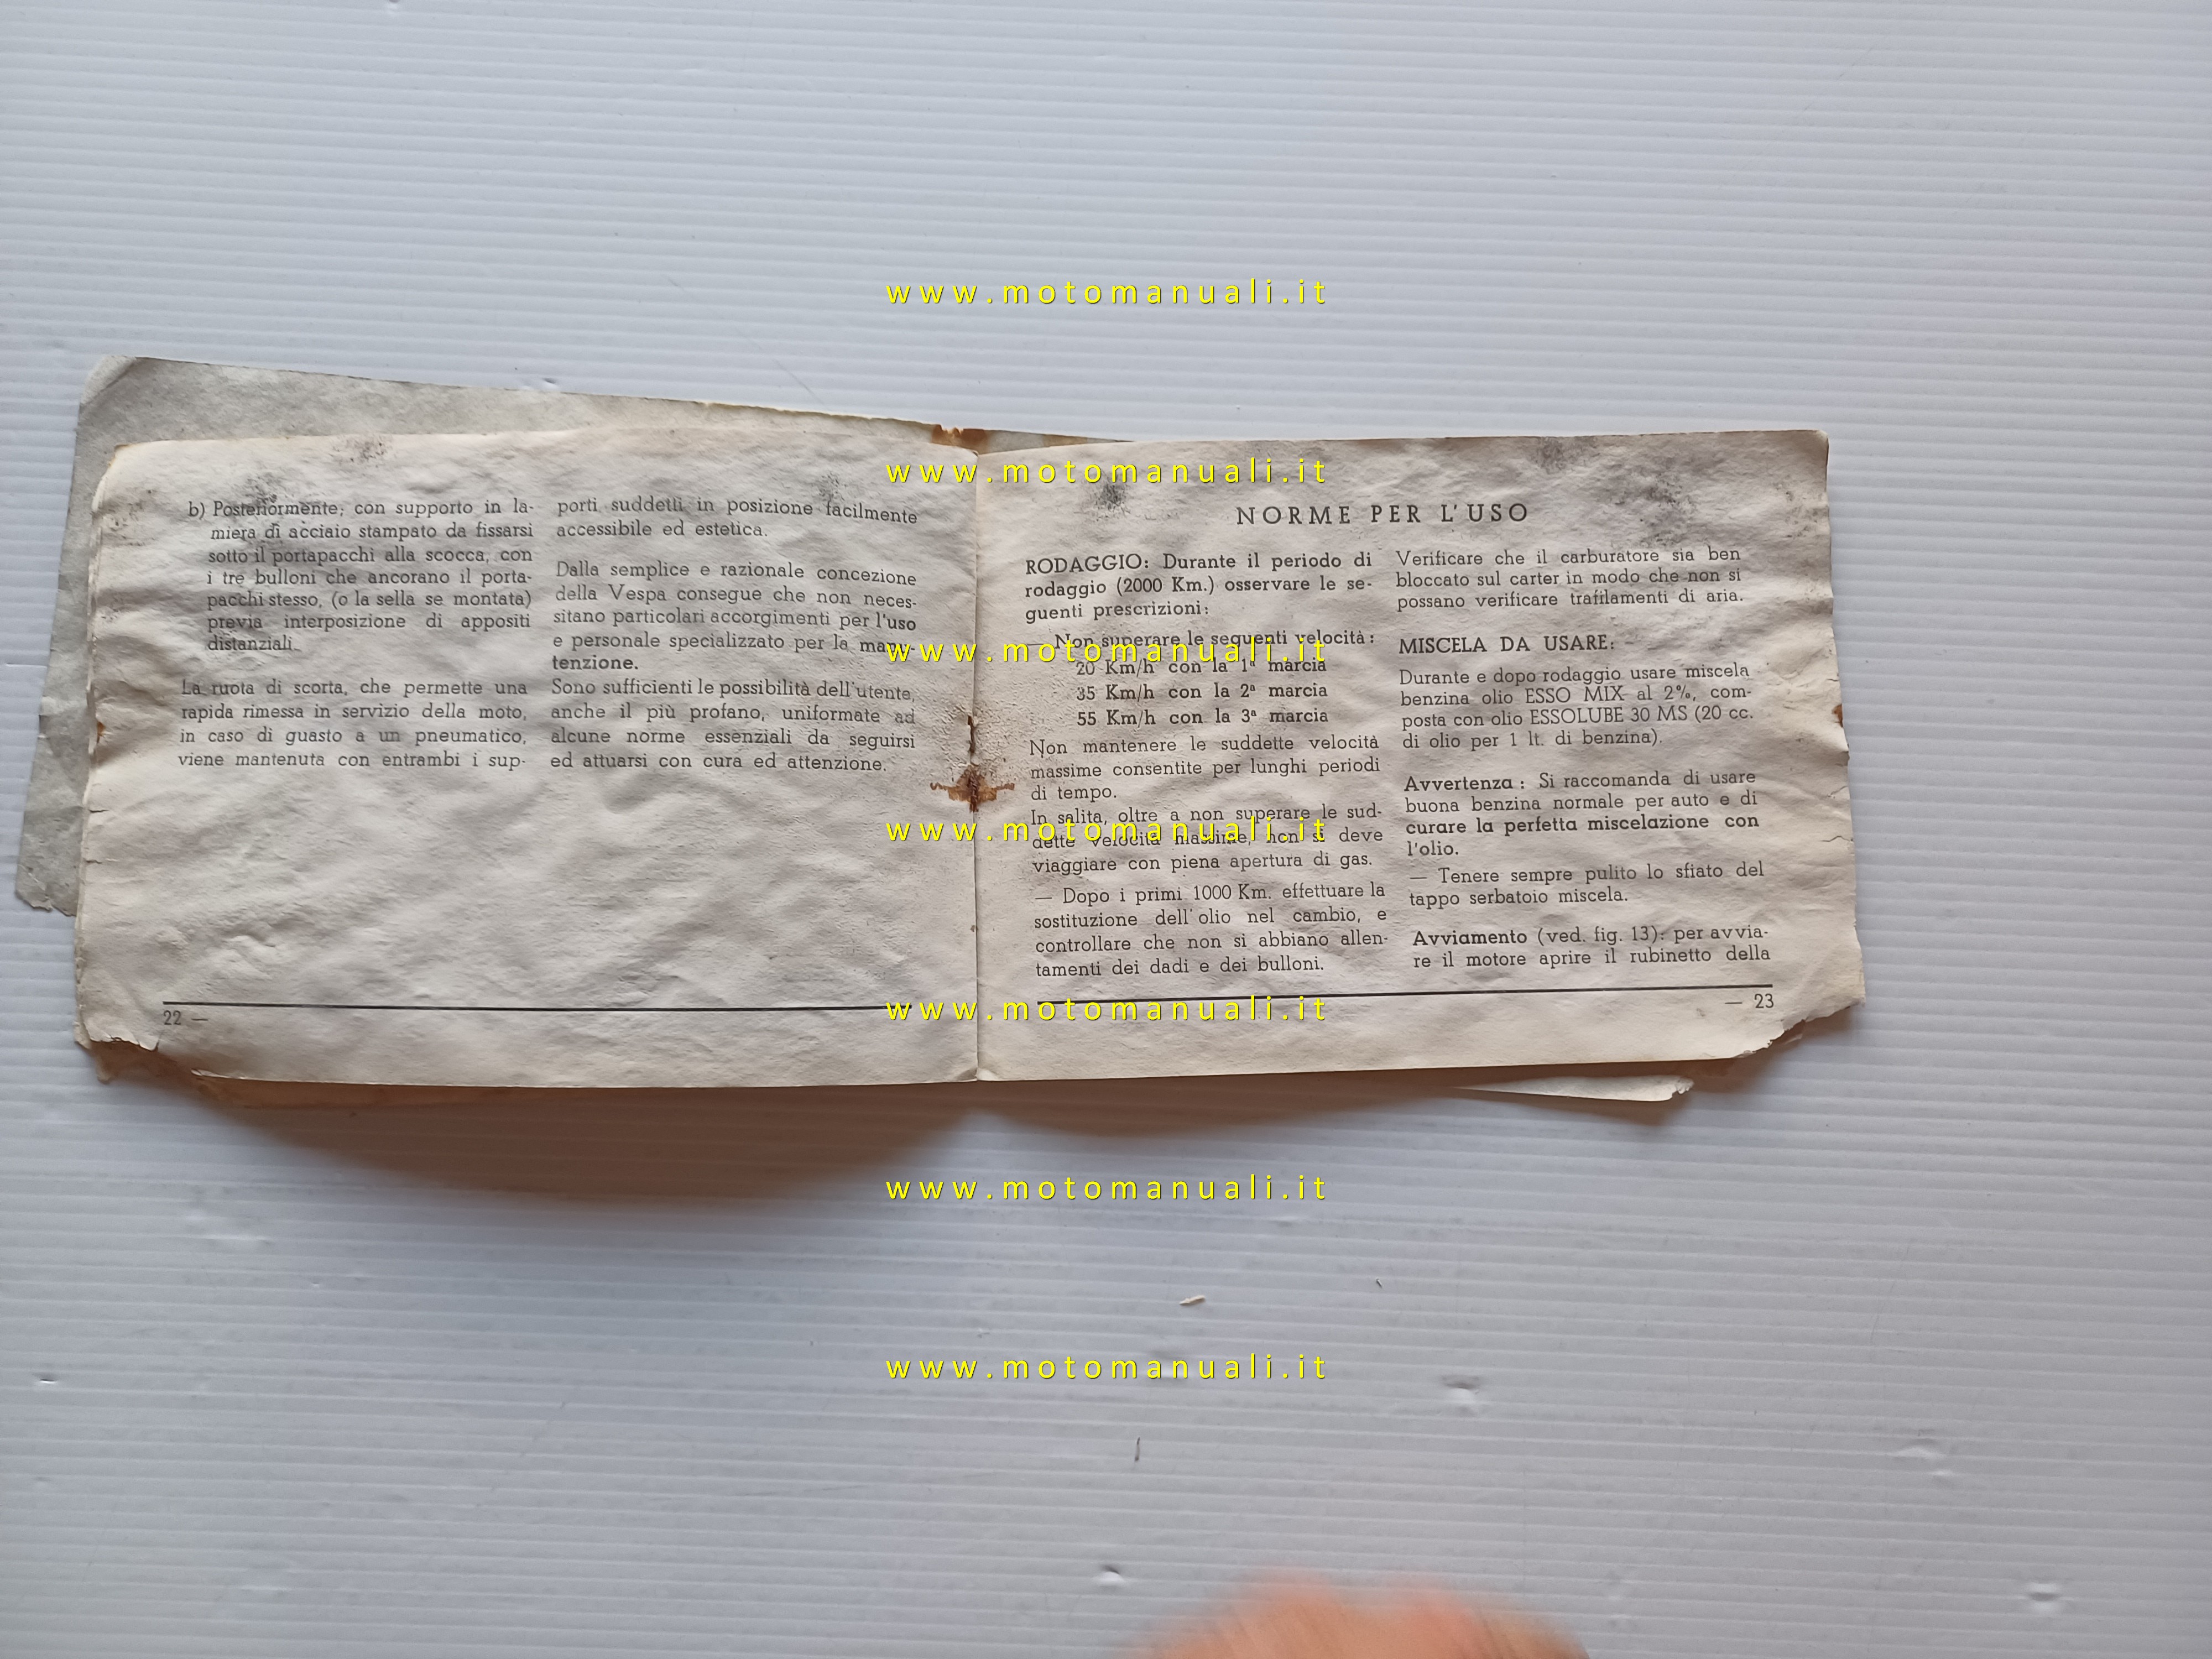 www.motomanuali.it
www.motomanuali.it
b) Posteriormente; con supporto in la-
miera di acciaio stampato da fissarsi
sotto il portapacchi alla scocca, con
i tre bulloni che ancorano il porta-
pacchi stesso, (o la sella se montata)
previa interposizione di appositi
distanziali.
La ruota di scorta, che permette una
rapida rimessa in servizio della moto,
in caso di guasto a un pneumatico,
viene mantenuta con entrambi i sup-
porti suddetti in posizione facilmente
accessibile ed estetica.
Dalla semplice e razionale concezione
della Vespa consegue che non neces-
sitano particolari accorgimenti per l'uso
e personale specializzato per la manu-
tenzione.
Sono sufficienti le possibilità dell'utente,
anche il più profano, uniformate ad
alcune norme essenziali da seguirsi
ed attuarsi con cura ed attenzione.
22 —
NORME PER L'USO
RODAGGIO: Durante il periodo di
rodaggio (2000 Km.) osservare le se-
guenti prescrizioni:
— Non superare le seguenti velocità:
20 Km/h con la 1ª marcia
35 Km/h con la 2ª marcia
55 Km/h con la 3ª marcia
Non mantenere le suddette velocità
massime consentite per lunghi periodi
di tempo.
In salita, oltre a non superare le sud-
dette velocità massime, non si deve
viaggiare con piena apertura di gas.
— Dopo i primi 1000 Km. effettuare la
sostituzione dell'olio nel cambio, e
controllare che non si abbiano allen-
tamenti dei dadi e dei bulloni.
Verificare che il carburatore sia ben
bloccato sul carter in modo che non si
possano verificare trafilamenti di aria.
MISCELA DA USARE:
Durante e dopo rodaggio usare miscela
benzina olio ESSO MIX al 2%, com-
posta con olio ESSOLUBE 30 MS (20 cc.
di olio per 1 lt. di benzina).
Avvertenza: Si raccomanda di usare
buona benzina normale per auto e di
curare la perfetta miscelazione con
l'olio.
— Tenere sempre pulito lo sfiato del
tappo serbatoio miscela.
Avviamento (ved. fig. 13): per avvia-
re il motore aprire il rubinetto della
— 23
www.motomanuali.it
www.motomanuali.it
www.motomanuali.it
www.motomanuali.it
www.motomanuali.it